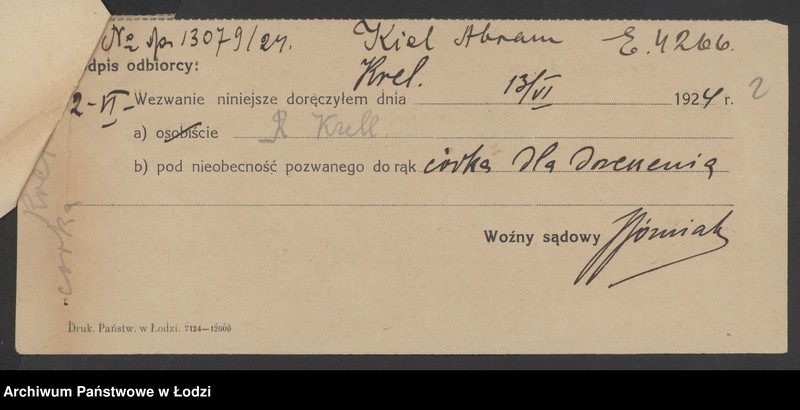 № sp. 13079/24. Kiel Abram E. 4266.
dpis odbiorcy:
Krel.
2-VI- Wezwanie niniejsze doręczyłem dnia 13/VI 1924 r. 2
a) osobiście R Krell
b) pod nieobecność pozwanego do rąk córka dla doręczenia
Krel
córka
Woźny sądowy
Druk. Państw. w Łodzi. 7124—12000
Archiwum Państwowe w Łodzi